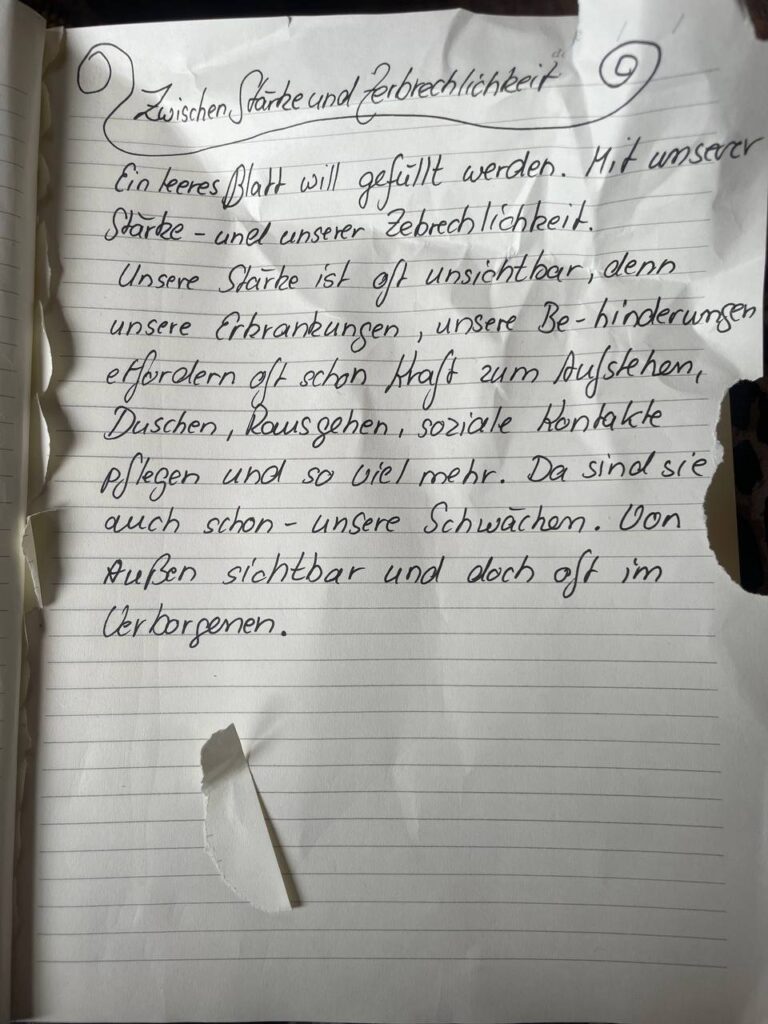 Zwischen Stärke und Zerbrechlichkeit
Ein leeres Blatt will gefüllt werden. Mit unserer
Stärke - und unserer Zebrechlichkeit.
Unsere Stärke ist oft unsichtbar, denn
unsere Erkrankungen, unsere Be-hinderungen
erfordern oft schon Kraft zum Aufstehen,
Duschen, Rausgehen, soziale Kontakte
pflegen und so viel mehr. Da sind sie
auch schon - unsere Schwächen. Von
Außen sichtbar und doch oft im
Verborgenen.